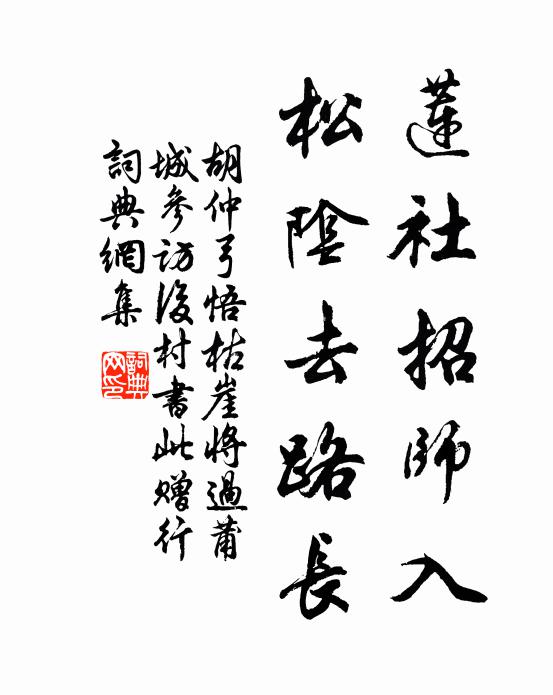 蓮社招師入
松陰去路長
胡仲弓悟枯崖將過莆
城參訪後村書此贈行
詞典網集
詞典網印